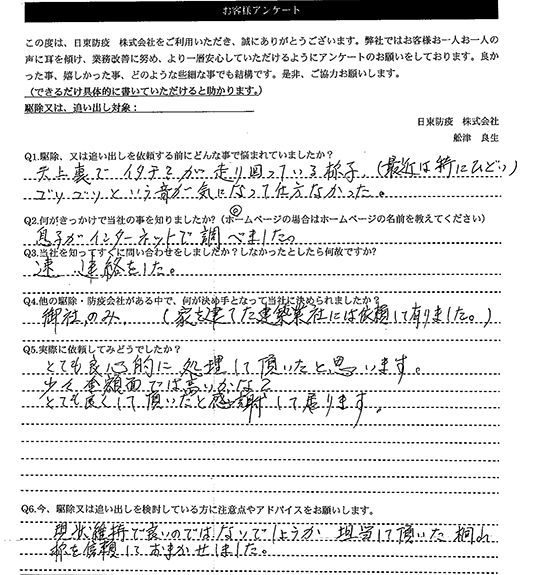 お客様アンケート
この度は、日東防疫　株式会社をご利用いただき、誠にありがとうございます。弊社ではお客様お一人お一人の
声に耳を傾け、業務改善に努め、より一層安心していただけるようにアンケートのお願いをしております。良か
った事、嬉しかった事、どのような些細な事でも結構です。是非、ご協力お願いします。
（できるだけ具体的に書いていただけると助かります。）
駆除又は、追い出し対象：
日東防疫　株式会社
舩津　良生
Q1.駆除、又は追い出しを依頼する前にどんな事で悩まれていましたか？
天上裏で イタチらが走り回っている様子 (最近は特にひどい)
ゴソゴソという音が気になって仕方なかった。
Q2.何がきっかけで当社の事を知りましたか？（ホームページの場合はホームページの名前を教えてください）
息子がインターネットで調べました。
Q3.当社を知ってすぐに問い合わせをしましたか？しなかったとしたら何故ですか？
速 連絡をした。
Q4.他の駆除・防疫会社がある中で、何が決め手となって当社に決められましたか？
御社のみ. (家を建てた建築業社には依頼して有りました。)
Q5.実際に依頼してみどうでしたか？
とても良心的に処理して頂いたと思います。
少々金額面では高いかな？
とても良くして頂いたと感謝して居ります。
Q6.今、駆除又は追い出しを検討している方に注意点やアドバイスをお願いします。
現状維持で良いのではないでしょうか 担当して頂いた
様を信頼しておまかせしました。